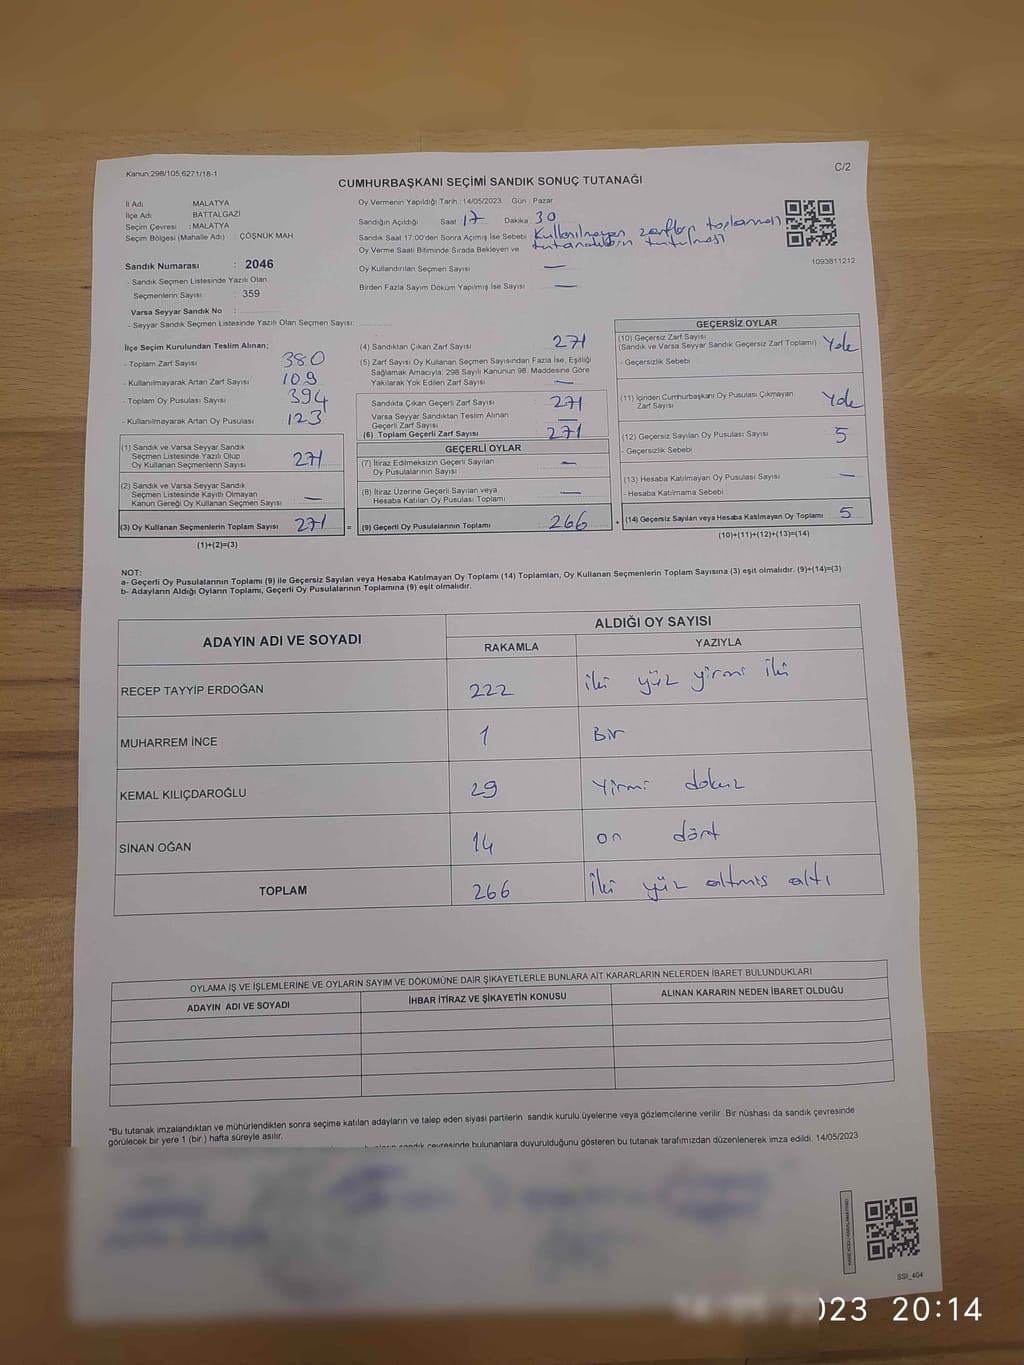 Kanun:298/105,6271/18-1
C/2
CUMHURBAŞKANI SEÇİMİ SANDIK SONUÇ TUTANAĞI
İl Adı : MALATYA
İlçe Adı : BATTALGAZİ
Seçim Çevresi : MALATYA
Seçim Bölgesi (Mahalle Adı) : ÇÖŞNÜK MAH
Sandık Numarası : 2046
- Sandık Seçmen Listesinde Yazılı Olan
Seçmenlerin Sayısı : 359
Varsa Seyyar Sandık No :
- Seyyar Sandık Seçmen Listesinde Yazılı Olan Seçmen Sayısı:
Oy Vermenin Yapıldığı Tarih : 14/05/2023 Gün : Pazar
Sandığın Açıldığı Saat 17 Dakika 30
Sandık Saat 17:00'den Sonra Açımış İse Sebebi Kullanılmayan zarfların toplanması
tutanakların tutulması
Oy Verme Saati Bitiminde Sırada Bekleyen ve
Oy Kullandırılan Seçmen Sayısı —
Birden Fazla Sayım Döküm Yapılmış İse Sayısı —
1093811212
İlçe Seçim Kurulundan Teslim Alınan;
- Toplam Zarf Sayısı 380
- Kullanılmayarak Artan Zarf Sayısı 109
- Toplam Oy Pusulası Sayısı 394
- Kullanılmayarak Artan Oy Pusulası 123
(1) Sandık ve Varsa Seyyar Sandık
Seçmen Listesinde Yazılı Olup
Oy Kullanan Seçmenlerin Sayısı 271
(2) Sandık ve Varsa Seyyar Sandık
Seçmen Listesinde Kayıtlı Olmayan
Kanun Gereği Oy Kullanan Seçmen Sayısı —
(3) Oy Kullanan Seçmenlerin Toplam Sayısı 271 =
(1)+(2)=(3)
(4) Sandıktan Çıkan Zarf Sayısı 271
(5) Zarf Sayısı Oy Kullanan Seçmen Sayısından Fazla İse, Eşitliği
Sağlamak Amacıyla; 298 Sayılı Kanunun 98. Maddesine Göre
Yakılarak Yok Edilen Zarf Sayısı —
Sandıkta Çıkan Geçerli Zarf Sayısı 271
Varsa Seyyar Sandıktan Teslim Alınan
Geçerli Zarf Sayısı —
(6) Toplam Geçerli Zarf Sayısı 271
GEÇERLİ OYLAR
(7) İtiraz Edilmeksizin Geçerli Sayılan
Oy Pusulalarının Sayısı —
(8) İtiraz Üzerine Geçerli Sayılan veya
Hesaba Katılan Oy Pusulası Toplamı —
(9) Geçerli Oy Pusulalarının Toplamı 266 +
GEÇERSİZ OYLAR
(10) Geçersiz Zarf Sayısı
(Sandık ve Varsa Seyyar Sandık Geçersiz Zarf Toplamı) Yok
- Geçersizlik Sebebi
(11) İçinden Cumhurbaşkanı Oy Pusulası Çıkmayan
Zarf Sayısı Yok
(12) Geçersiz Sayılan Oy Pusulası Sayısı 5
- Geçersizlik Sebebi
(13) Hesaba Katılmayan Oy Pusulası Sayısı —
- Hesaba Katılmama Sebebi
(14) Geçersiz Sayılan veya Hesaba Katılmayan Oy Toplamı 5
(10)+(11)+(12)+(13)=(14)
NOT:
a- Geçerli Oy Pusulalarının Toplamı (9) ile Geçersiz Sayılan veya Hesaba Katılmayan Oy Toplamı (14) Toplamları, Oy Kullanan Seçmenlerin Toplam Sayısına (3) eşit olmalıdır. (9)+(14)=(3)
b- Adayların Aldığı Oyların Toplamı, Geçerli Oy Pusulalarının Toplamına (9) eşit olmalıdır.
ADAYIN ADI VE SOYADI
ALDIĞI OY SAYISI
RAKAMLA YAZIYLA
RECEP TAYYİP ERDOĞAN 222 iki yüz yirmi iki
MUHARREM İNCE 1 Bir
KEMAL KILIÇDAROĞLU 29 Yirmi dokuz
SİNAN OĞAN 14 on dört
TOPLAM 266 iki yüz altmış altı
OYLAMA İŞ VE İŞLEMLERİNE VE OYLARIN SAYIM VE DÖKÜMÜNE DAİR ŞİKAYETLERLE BUNLARA AİT KARARLARIN NELERDEN İBARET BULUNDUKLARI
ADAYIN ADI VE SOYADI İHBAR İTİRAZ VE ŞİKAYETİN KONUSU ALINAN KARARIN NEDEN İBARET OLDUĞU
*Bu tutanak imzalandıktan ve mühürlendikten sonra seçime katılan adayların ve talep eden siyasi partilerin sandık kurulu üyelerine veya gözlemcilerine verilir. Bir nüshası da sandık çevresinde
görülecek bir yere 1 (bir.) hafta süreyle asılır.
sandık çevresinde bulunanlara duyurulduğunu gösteren bu tutanak tarafımızdan düzenlenerek imza edildi. 14/05/2023
SSI_404
023 20:14